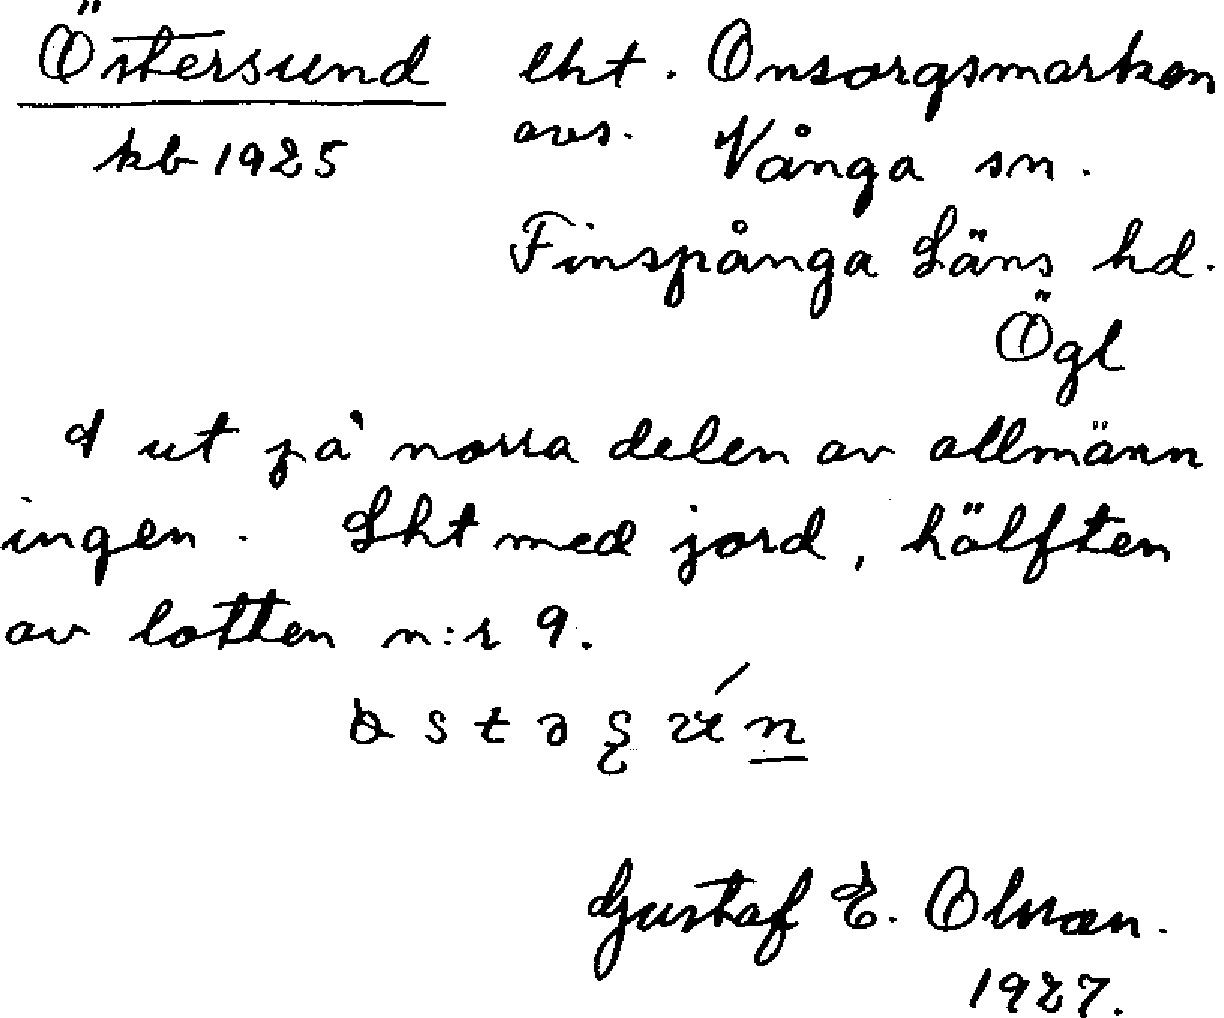 Östersund lht. Onsorgsmarken
kb 1925 avs. Vånga sn.
Finspånga Läns hd.
Ögl
ut på norra delen av allmänn
ingen. Lht med jord, hälften
av lotten n:r 9.
Gustaf E. Olsson.
1927.